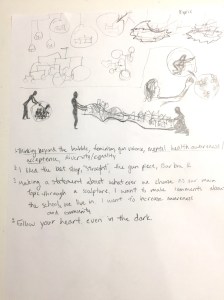 1. thinking beyond the bubble, feminism, gun control, mental health awareness/
acceptance, diversity/equality
2. I liked the Bus Stop, "Uropia", the gun piece,
3. Making a statement about whatever we choose as our main
topic through a sculpture. I want to make comments about
the school we live in. I want to increase awareness
and community.
Follow your heart even in the dark.